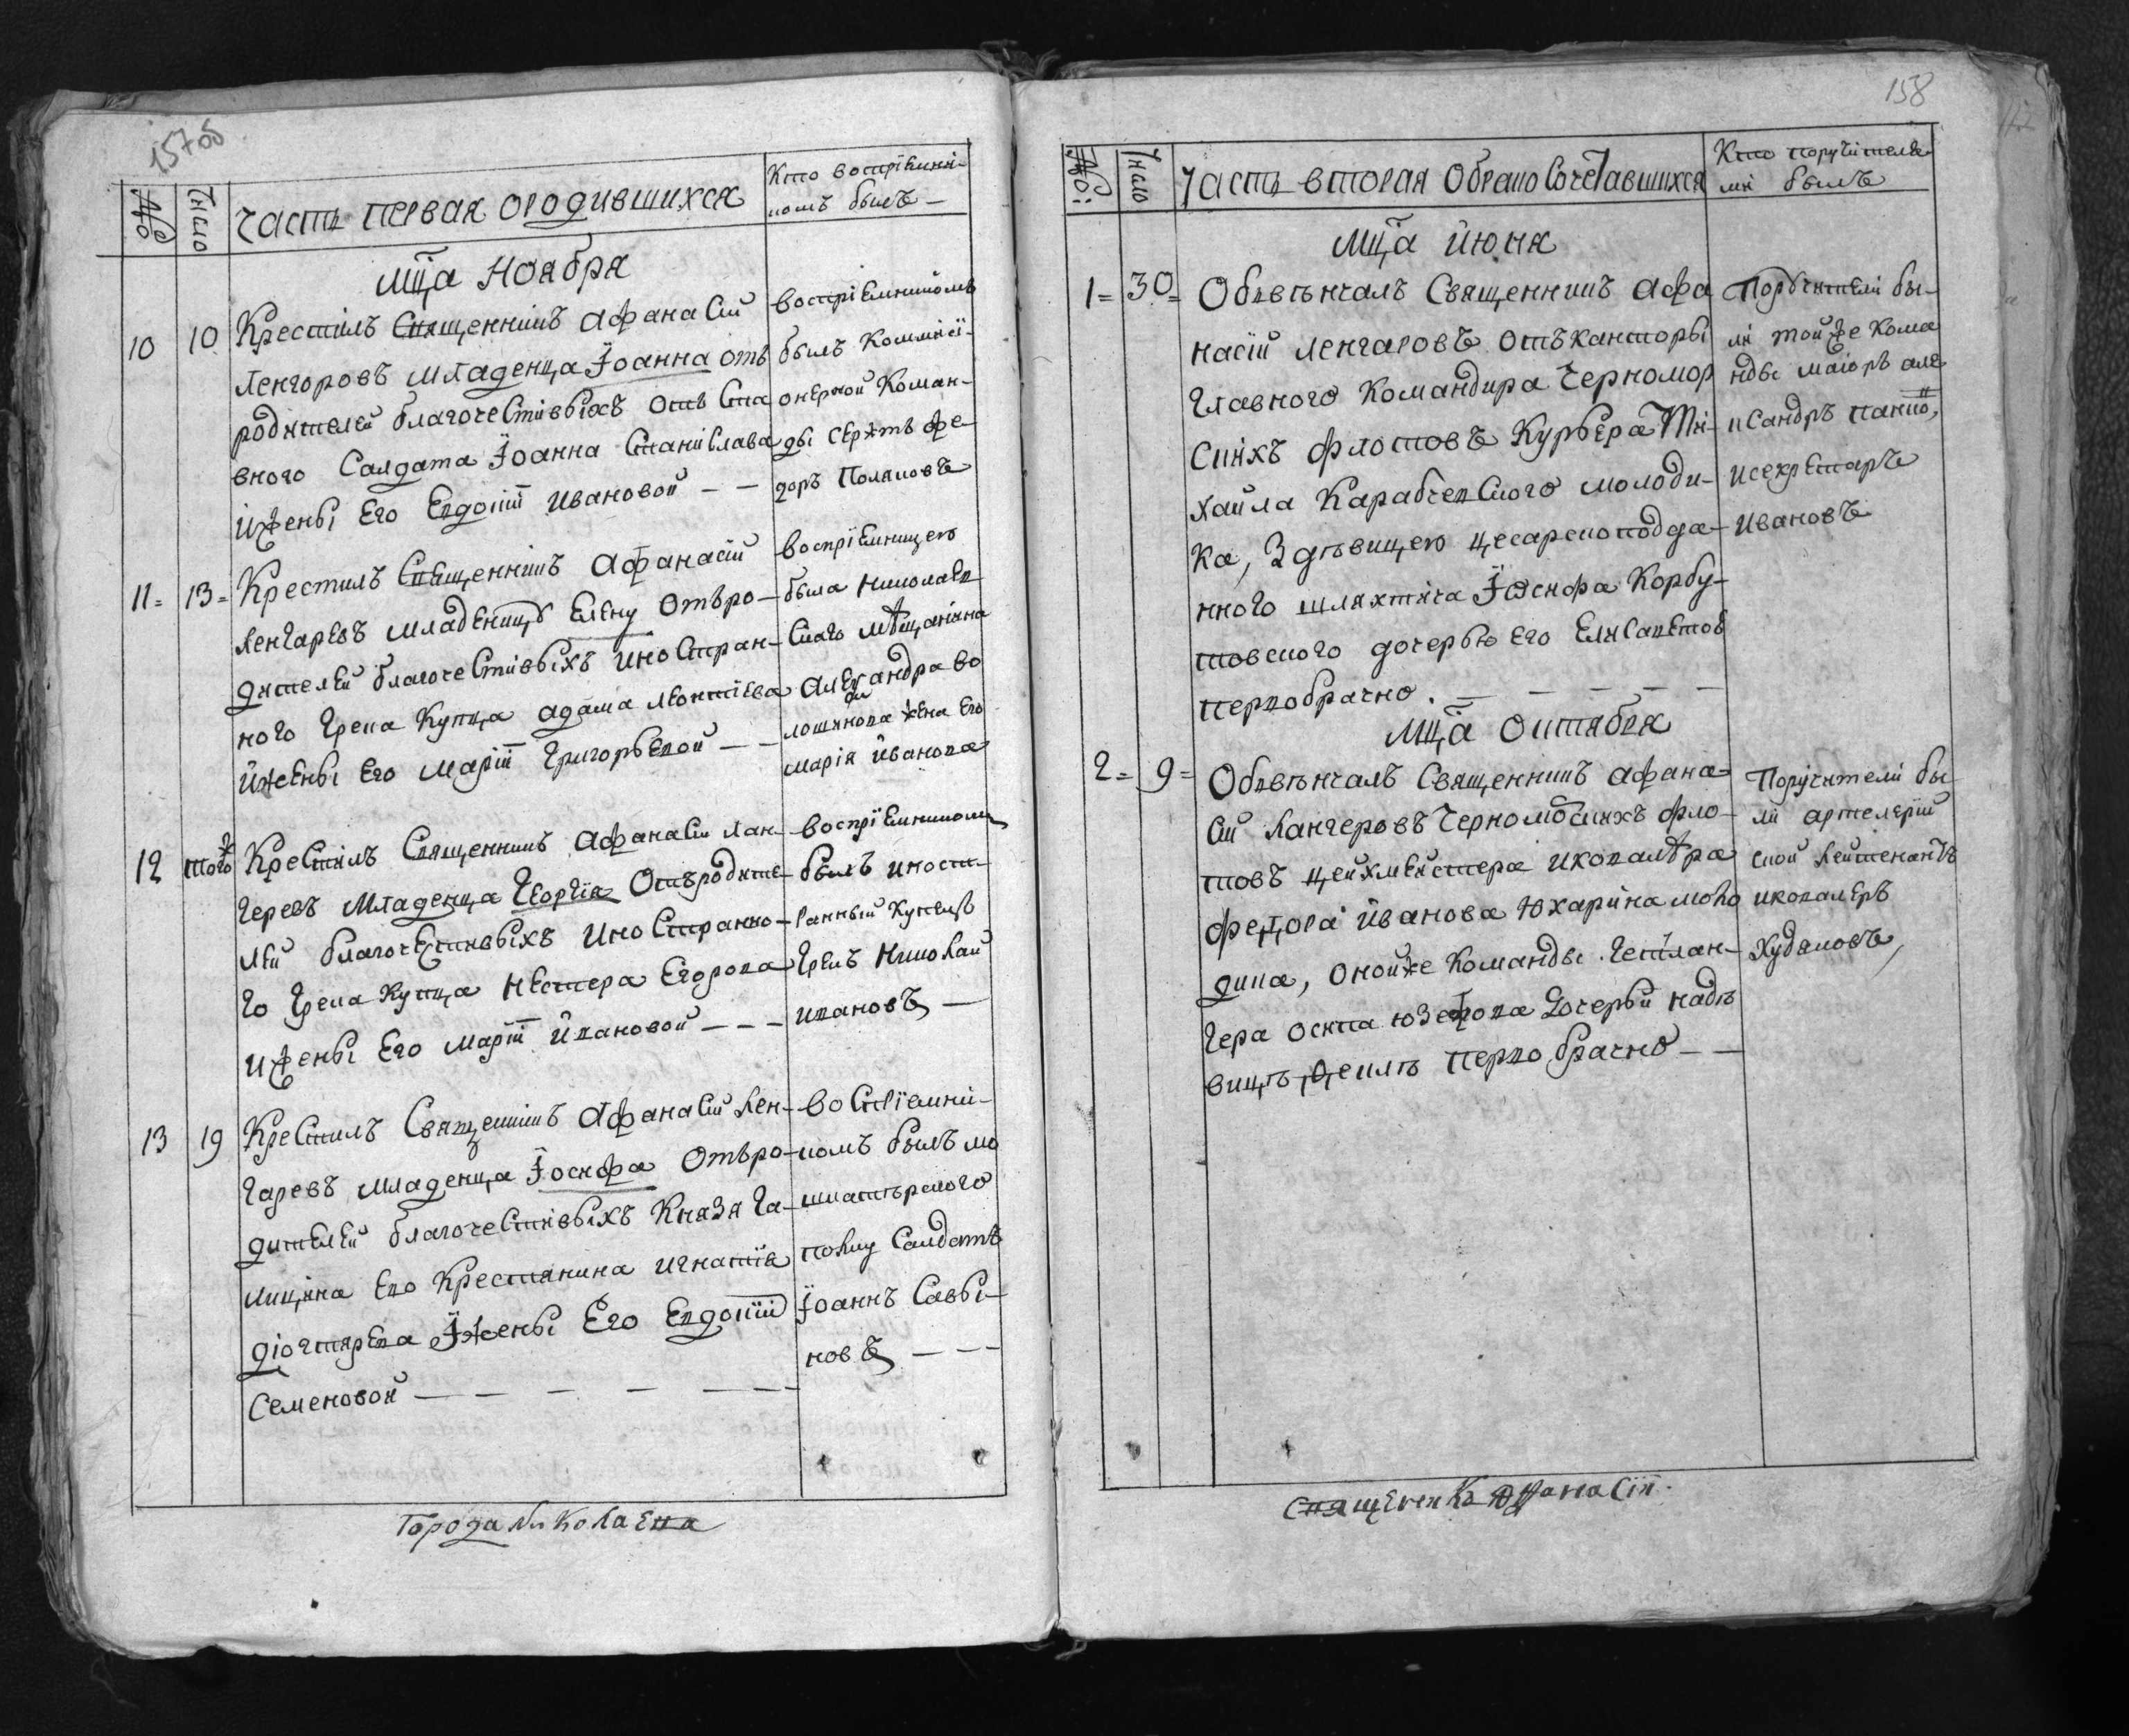 157об
№
Число
Часть первая ородившихся
Кто воспріемни-
комъ былъ —
Мца Ноября
10
10
Крестилъ Священникъ Афанасій
Ленгоровъ младенца Іоанна отъ
родителей благочестивыхъ отъ Ста
вного Салдата Іоанна Станіслава
ижены Его Евдокіи Ивановой — —
воспріемникомъ
былъ Коммисі-
онерной Коман-
ды Сержтъ Фе-
доръ Поляковъ
11=
13=
Крестилъ Священникъ Афанасій
Ленгаревъ младеницу Елену Отъро-
дителей благочестивыхъ Иностран-
ного Грека Купца Адама Леонтіева
ижены Его Маріи Григорьевой — —
воспріемницею
была Николаев
скаго мещанина
Александра Во
лошинова жена Его
марія Иванова
12
тогож
Крестилъ Священникъ Афанасій Лан-
геревъ Младенца Георгія Отъродите-
лей благочестивыхъ Иностранно-
го Грека Купца Нестера Егорова
ижены Его Маріи Ивановой — — —
воспріемникомъ
былъ иност-
ранный Купецъ
Грекъ Николай
ивановъ —
13
19
Крестилъ Священникъ Афанасій Лен-
гаревъ младенца Іосифа Отъро-
дителей благочестивыхъ Князя Га-
лицина Его Крестянина Игнатія
діогтярева Іжены Его Евдокіи
Семеновой — — — — — —
воспріемни-
комъ былъ мо
шкатерского
полку Салдатъ
Іоаннъ Саввы-
новъ — — —
Города Николаева
158
№
Число
Часть вторая Обрако Сочетавшихся
Кто поручителя-
ми былъ
Мца июня
1=
30=
Обвѣнчалъ Священникъ Афа
насій Ленгаровъ Отъ канторы
Главного Командира Черномор
Скихъ флотовъ Курьера Ми-
хайла Карабчевского молоди-
ка, Здѣвицею цесарскоподда-
нного шляхтича Іосифа Корбу-
товского дочерью Его Елисаветов
первобрачно. — — — —
Поручители бы-
ли той же Кома
нды маіоръ але
ксандръ панко,
исекретаръ
Ивановъ
Мца Октября
2=
9=
Обвѣнчалъ Священникъ Афана-
сій Лангеровъ Черноморскихъ фло-
товъ цейхмейстера икавалѣра
федора Иванова Юхарина моло
дика, Онойже Команды Гетлан-
гера осипа юзефова Дочерьи надѣ
вицѣ, Феклѣ первобрачно — —
Поручители бы
ли артелерій
ской Лейтенантъ
икавалеръ
Худяковъ,
Священикъ Афанасій.